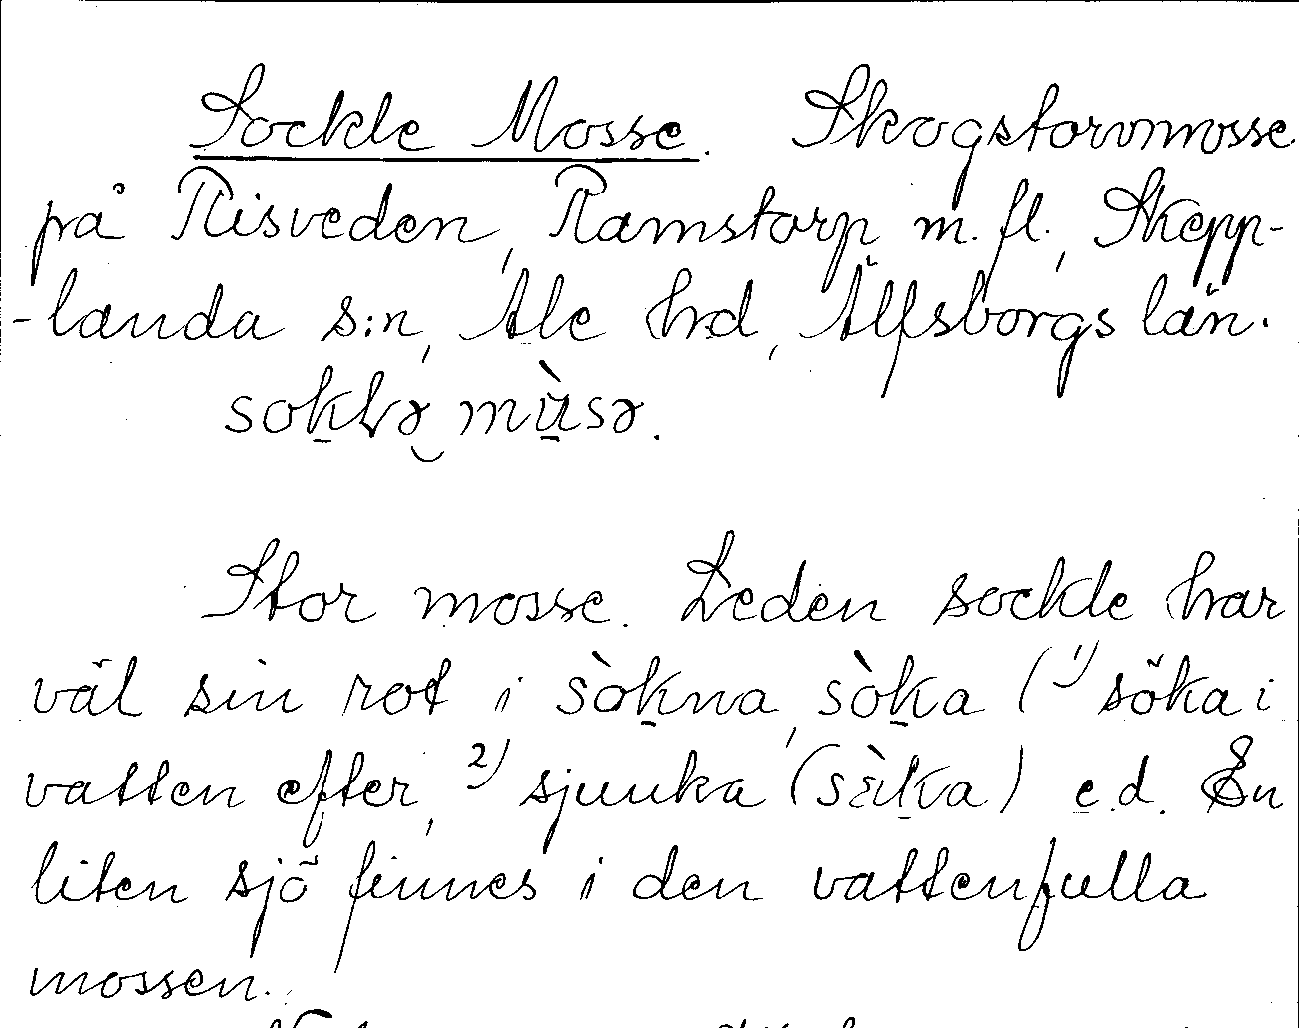 Sockle Mosse. Skogstorvmosse
på Risveden, Ramstorp m. fl., Skepp-
-landa s:n, Ale hd, Älfsborgs län.
soklə mùsə.
Stor mosse. Leden sockle har
väl sin rot i sòkna, sòka (1) söka i
vatten efter, 2) sjunka (sèka) e.d. En
liten sjö finnes i den vattenfulla
mossen.